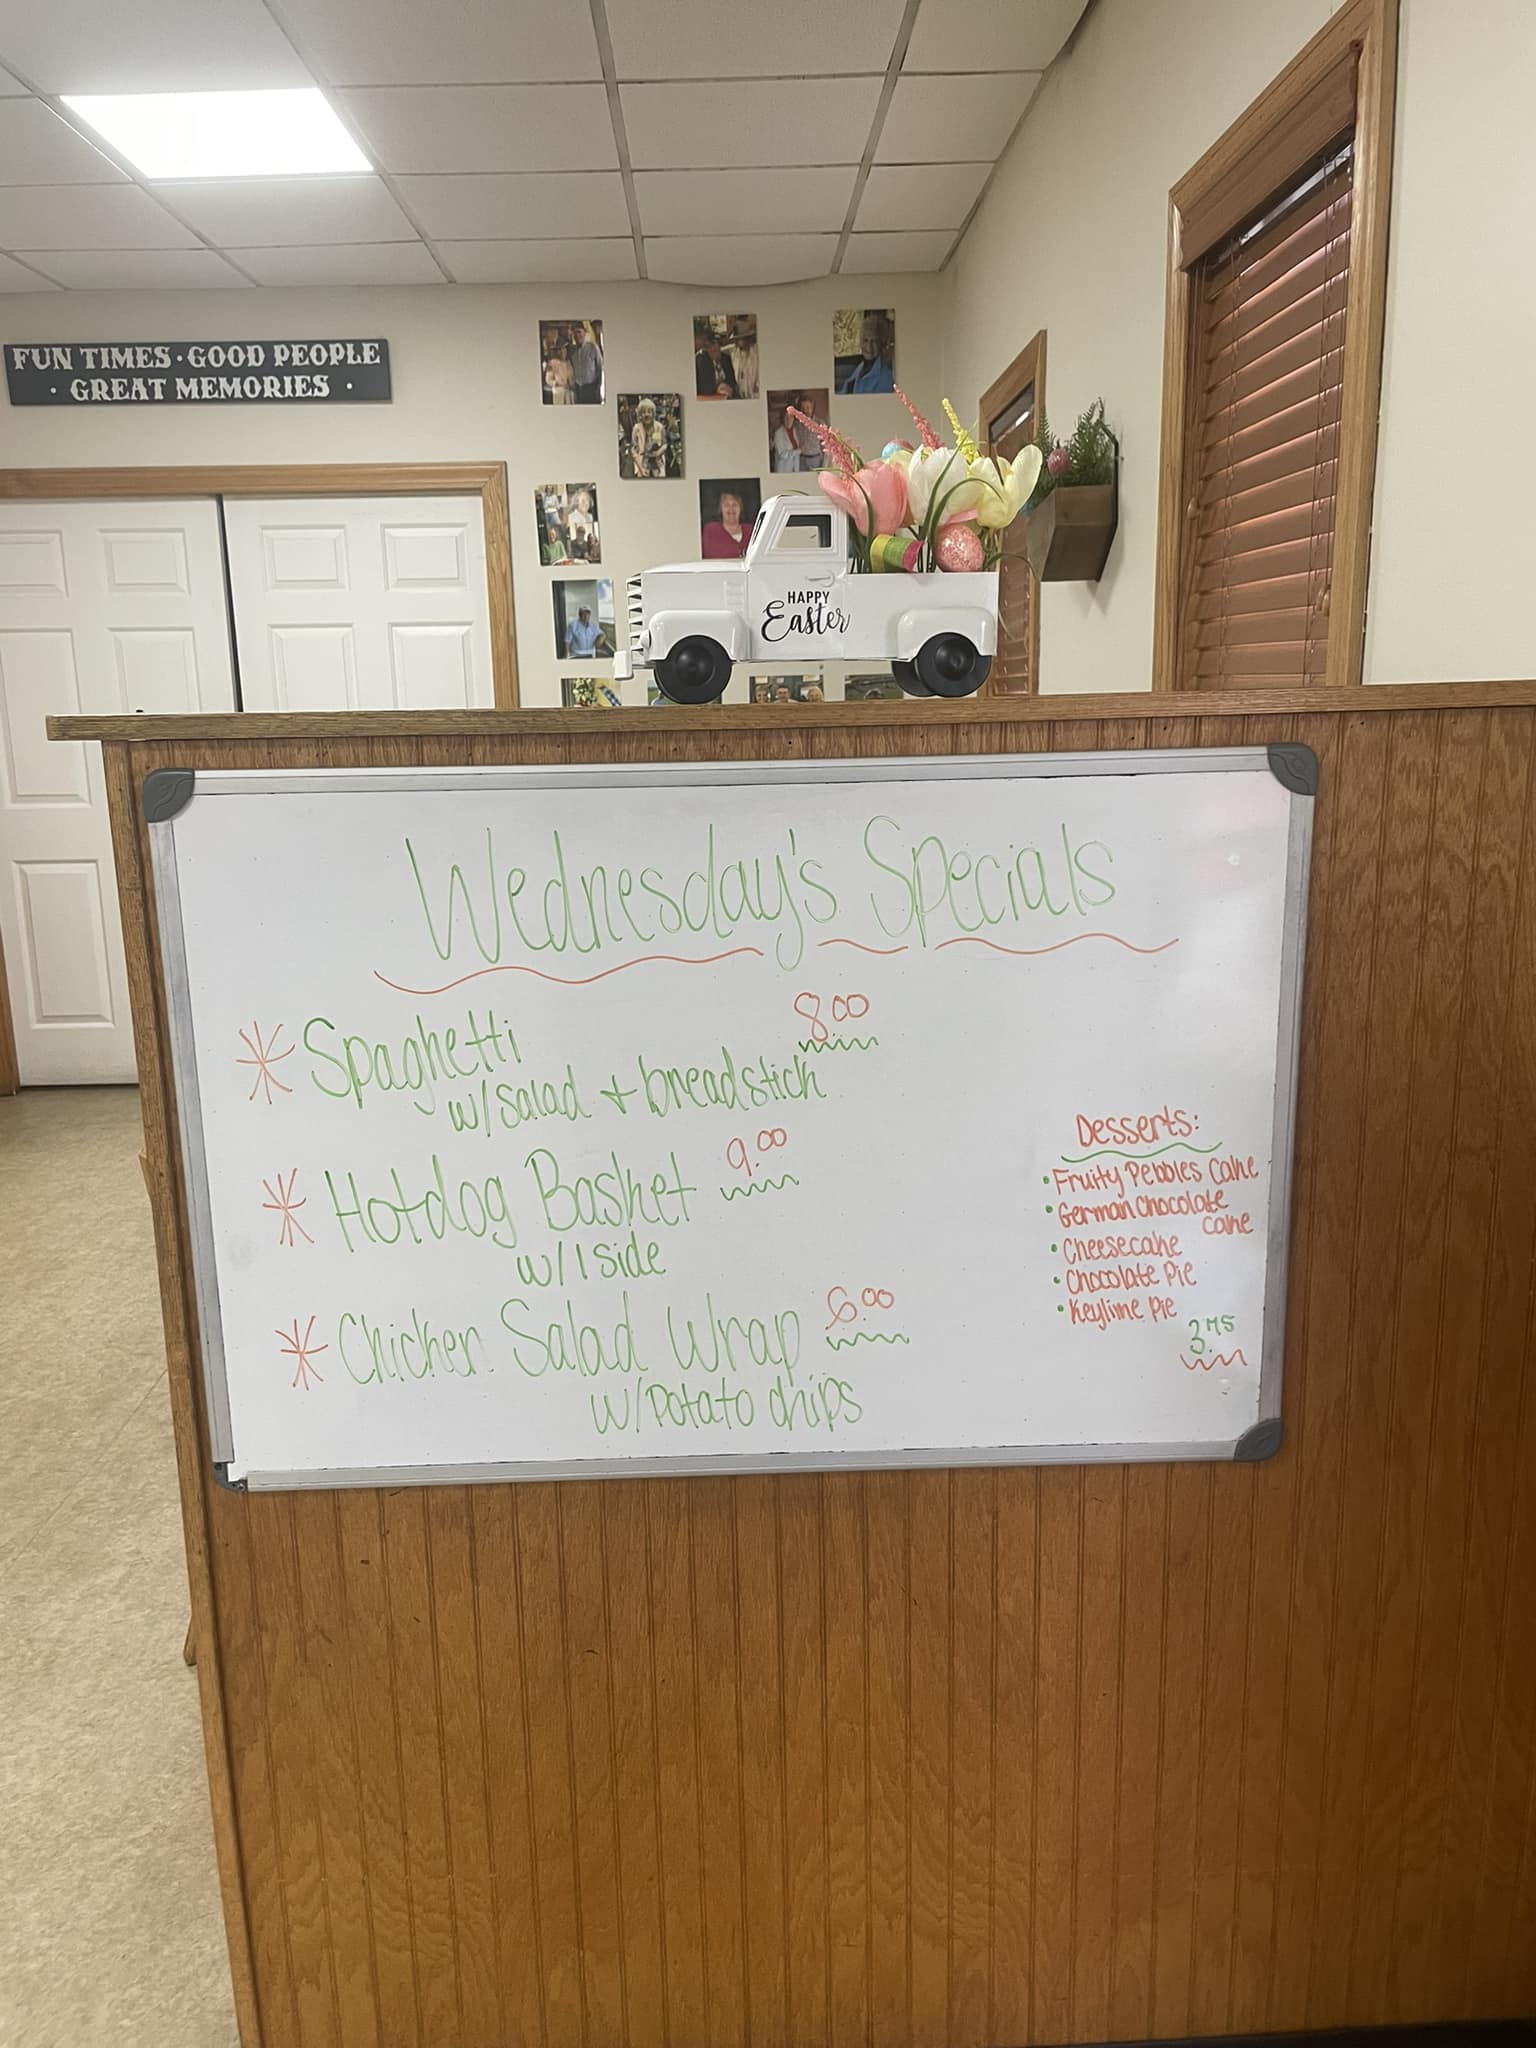 FUN TIMES · GOOD PEOPLE
· GREAT MEMORIES ·
HAPPY
Easter
Wednesday's Specials
Spaghetti 8.00
w/salad + breadstick
Hotdog Basket 9.00
w/1 side
Chicken Salad Wrap 6.00
w/Potato chips
Desserts:
• Fruity Pebbles Cake
• German Chocolate
Cake
• Cheesecake
• Chocolate Pie
• Keylime Pie
3.75